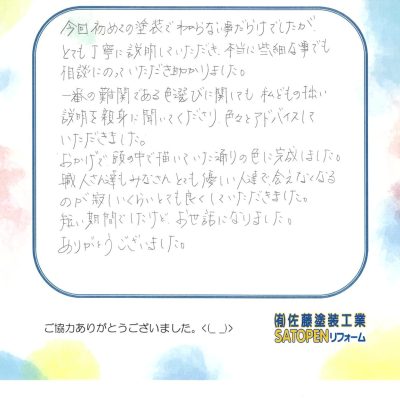 今回初めての塗装でわからない事だらけでしたが、
とても丁寧に説明していただき、本当に些細な事でも
相談にのっていただき助かりました。
一番の難関である色選びに関しても、私どもの拙い
説明を親身に聞いてくださり、色々とアドバイスして
いただきました。
おかげで頭の中で描いていた通りの色に完成しました。
職人さん達もみなさんとても優しい人達で、会えなくなる
のが寂しいくらいとても良くしていただきました。
短い期間でしたけど、お世話になりました。
ありがとうございました。
ご協力ありがとうございました。<(_ _)>
㈲佐藤塗装工業
SATOPENリフォーム